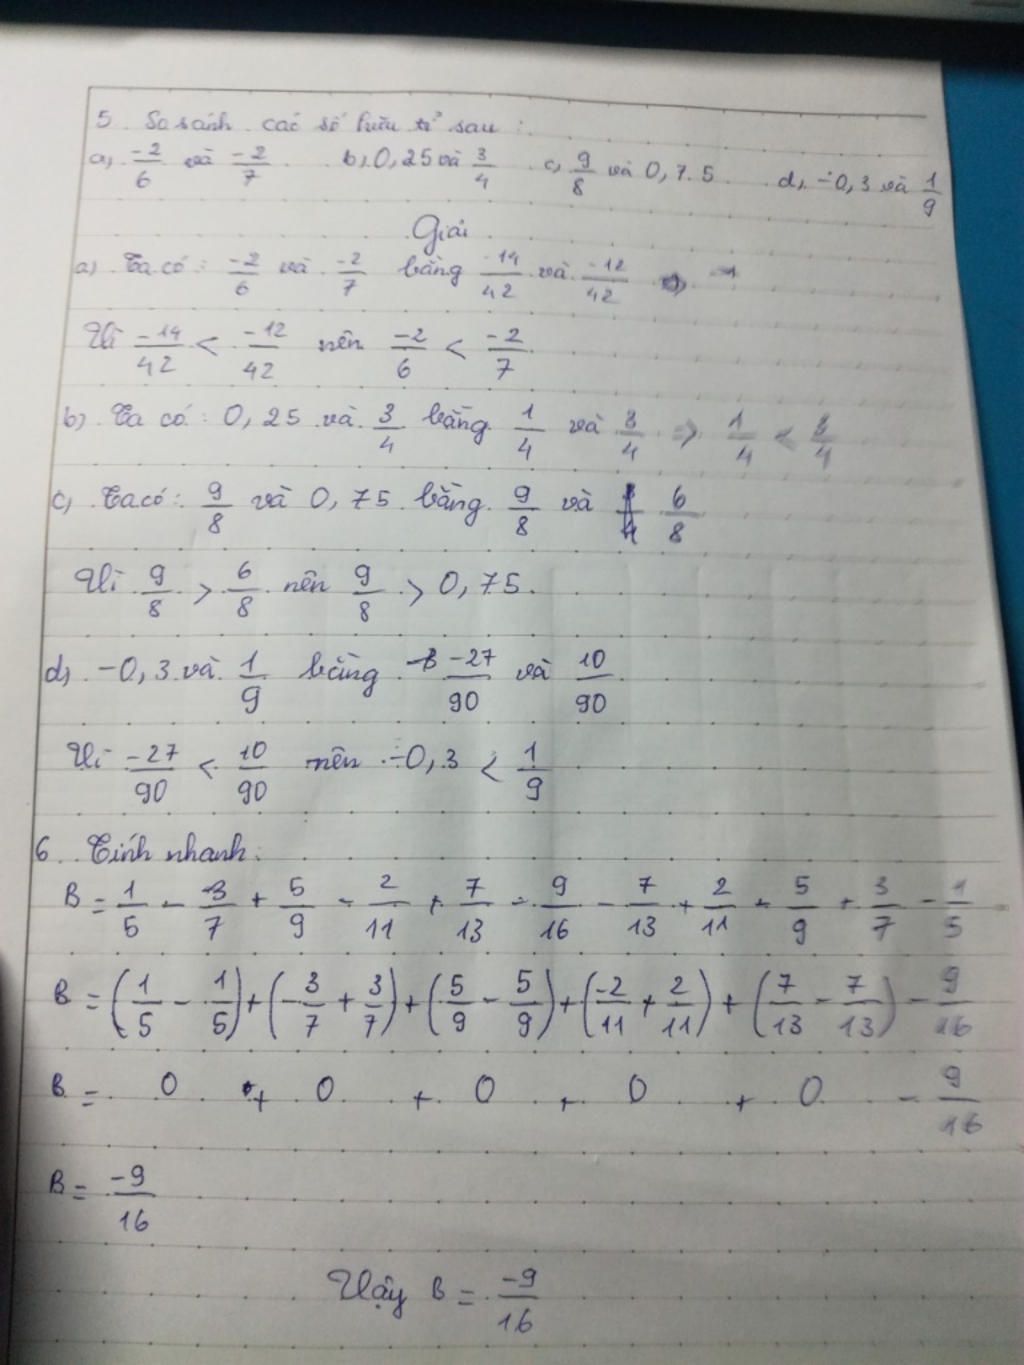 5. So sánh các số hữu tỉ sau:
a, -2/6 và -2/7 b, 0,25 và 3/4 c, 9/8 và 0,75 d, -0,3 và 1/9
Giải
a) Ta có: -2/6 và -2/7 bằng -14/42 và -12/42
Vì -14/42 < -12/42 nên -2/6 < -2/7
b) Ta có: 0,25 và 3/4 bằng 1/4 và 3/4 => 1/4 < 3/4
c) Ta có: 9/8 và 0,75 bằng 9/8 và 6/8
Vì 9/8 > 6/8 nên 9/8 > 0,75.
d) -0,3 và 1/9 bằng -27/90 và 10/90
Vì -27/90 < 10/90 nên -0,3 < 1/9
6. Tính nhanh:
B = 1/5 - 3/7 + 5/9 - 2/11 + 7/13 - 9/16 - 7/13 + 2/11 - 5/9 + 3/7 - 1/5
B = (1/5 - 1/5) + (-3/7 + 3/7) + (5/9 - 5/9) + (-2/11 + 2/11) + (7/13 - 7/13) - 9/16
B = 0 + 0 + 0 + 0 + 0 - 9/16
B = -9/16
Vậy B = -9/16